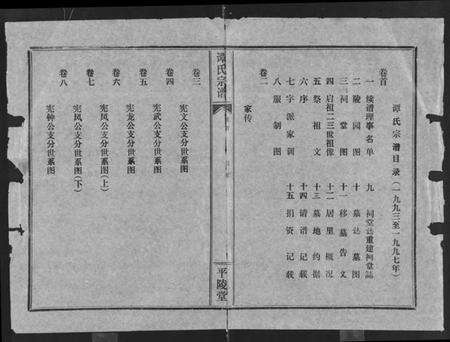 谭氏宗谱目录(一九九三至一九九七年)
卷首
一 续谱理事名单 九 祠堂志重建祠堂志
二 陵园图 十 墓志墓图
三 祠堂图 十一 移墓告文
四 启祖二三世祖像 十二 居里概况
五 祭祖文 十三 墓地约据
六 序 十四 请谱记载
七 字派家训 十五 捐资记载
八 服制图
卷二
家传
谭氏宗谱
平陵堂
卷三
宪文公支分世系图
卷四
宪武公支分世系图
卷五
宪龙公支分世系图
卷六
宪凤公支分世系图(上)
卷七
宪凤公支分世系图(下)
卷八
宪钟公支分世系图